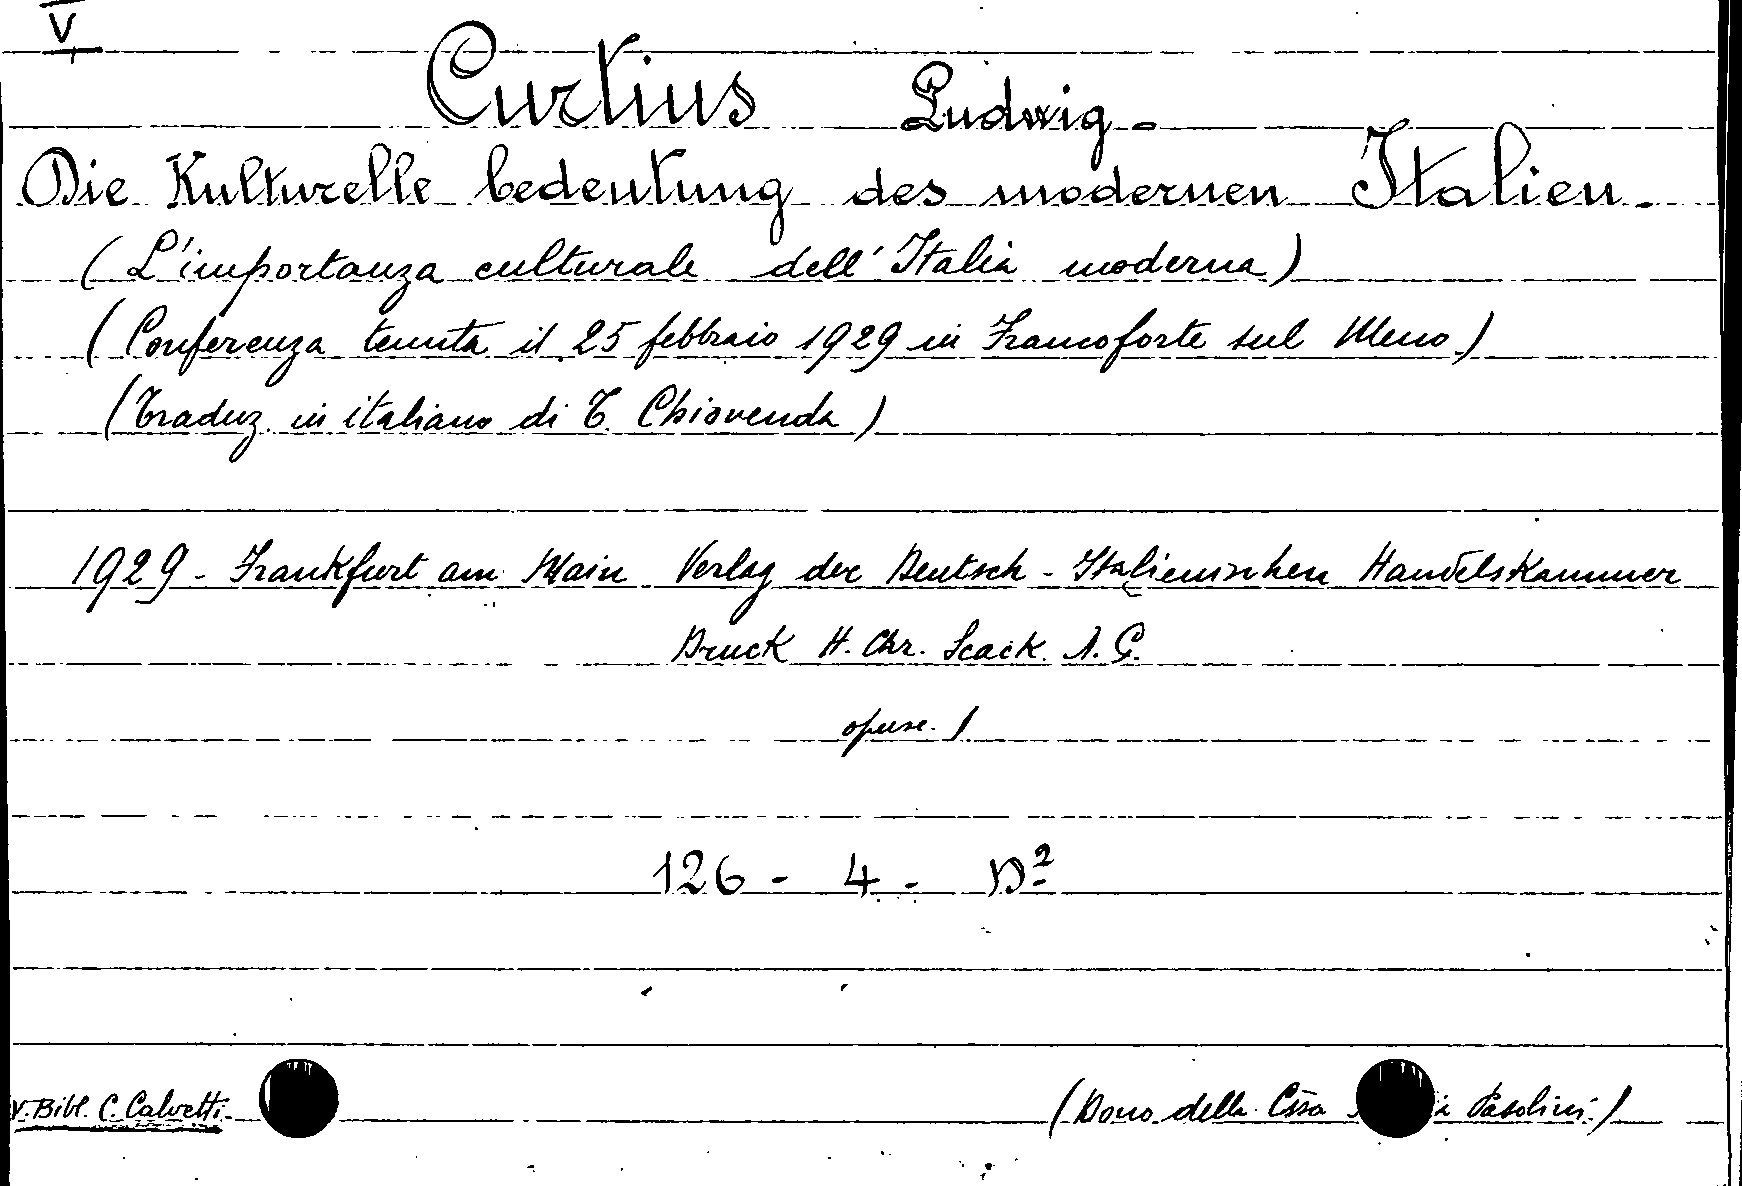 V
Curtius Ludwig -
Die Kulturelle bedeutung des modernen Italien -
(L'importanza culturale dell'Italia moderna)
(Conferenza tenuta il 25 febbraio 1929 in Francoforte sul Meno)
(Traduz. in italiano di T. Chiovenda)
1929 - Frankfurt am Main Verlag der Deutsch - Italienischen Handelskammer
Druck H. Chr. Scack A. G.
opusc. 1
126 - 4 - D²
V. Bibl. C. Calvetti
(Dono della Cssa Pasolini)